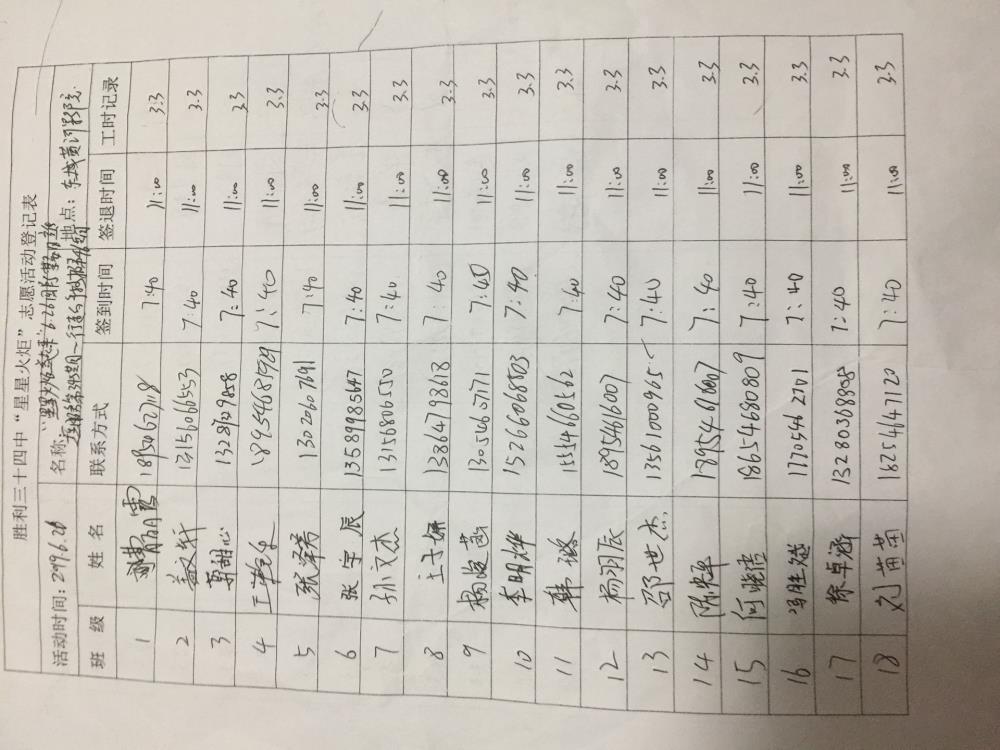 胜利三十四中“星星火炬”志愿活动登记表
活动时间： 名称： 地点：东城黄河影院
班 级 姓 名 联系方式 签到时间 签退时间 工时记录
1 7:40 11:00 3.3
2 7:40 11:00 3.3
3 甜心 7:40 11:00 3.3
4 7:40 11:00 3.3
5 张泽芳 13020607691 7:40 11:00 3.3
6 张宇辰 13589985647 7:40 11:00 3.3
7 孙文杰 13156806550 7:40 11:00 3.3
8 王子妍 13864798618 7:40 11:00 3.3
9 13054605771 7:40 11:00 3.3
10 李明烨 15266068803 7:40 11:00 3.3
11 韩璐 15554660562 7:40 11:00 3.3
12 杨羽辰 18954616007 7:40 11:00 3.3
13 邵世杰 13561000965 7:40 11:00 3.3
14 陈烨 18954616007 7:40 11:00 3.3
15 何晓浩 18654680809 7:40 11:00 3.3
16 冯胜斌 17705462701 7:40 11:00 3.3
17 徐卓涵 13280368808 7:40 11:00 3.3
18 刘茜茜 18254647120 7:40 11:00 3.3